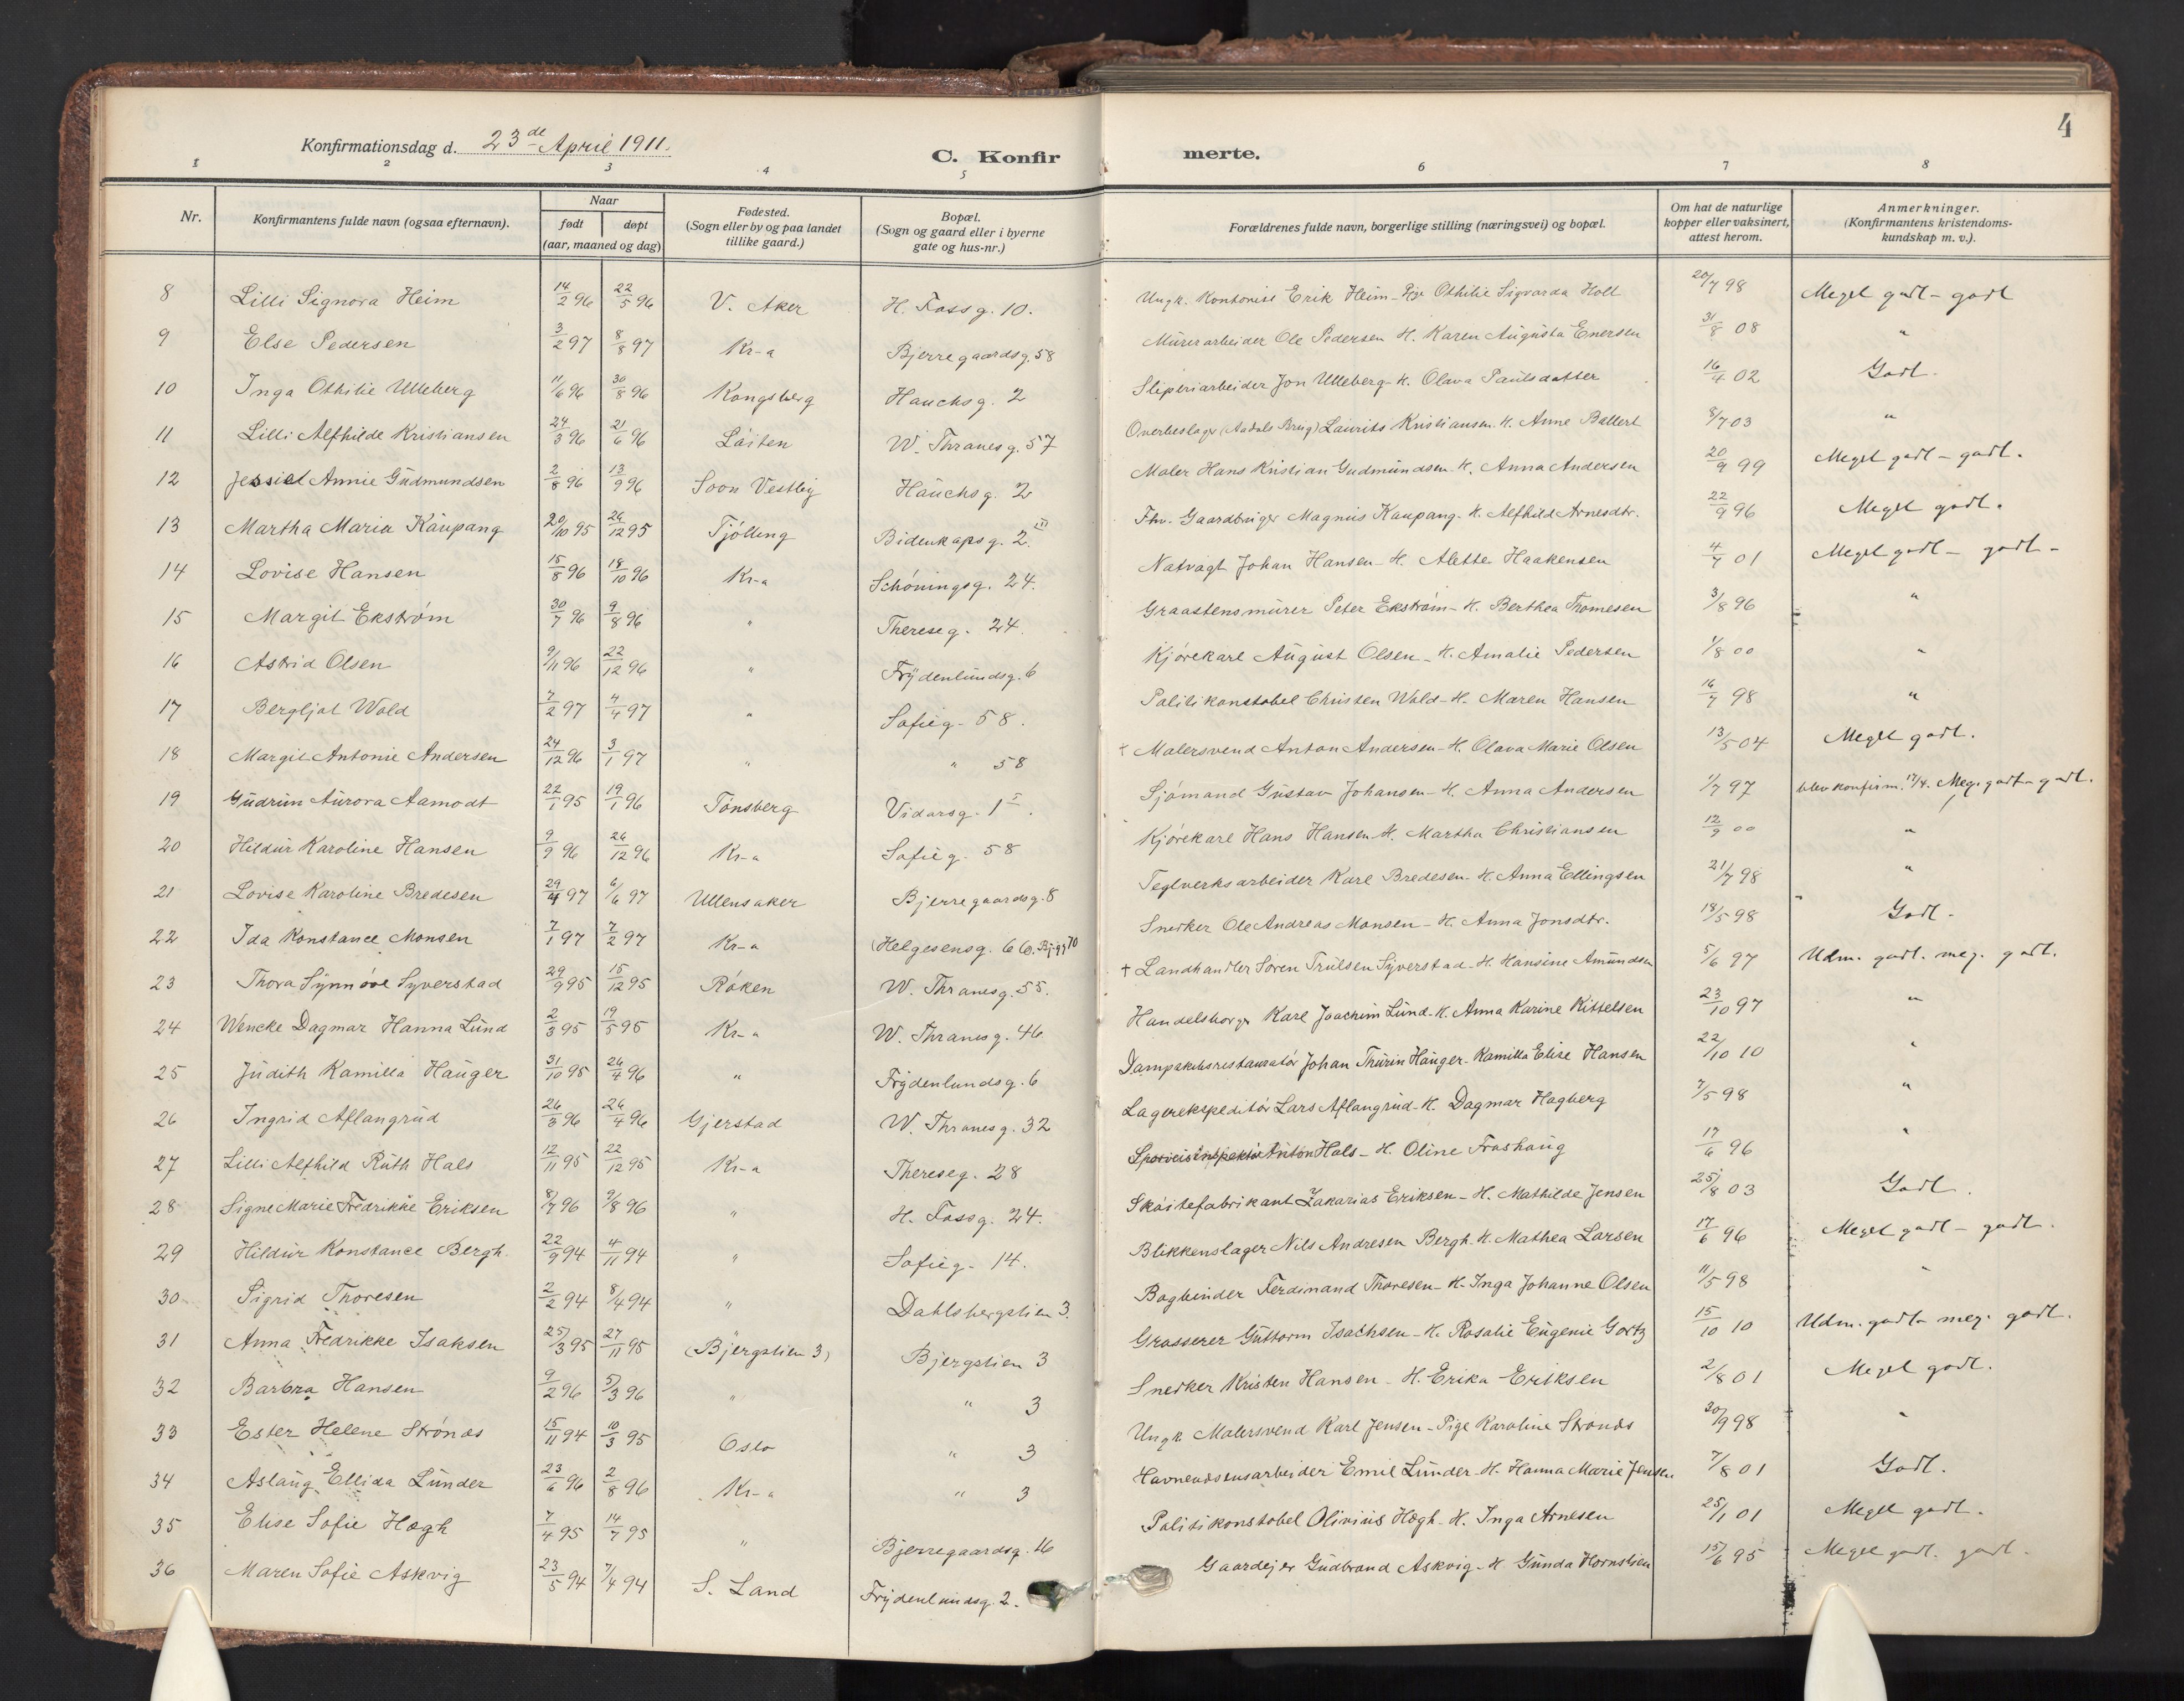 4
Konfirmationsdag d. 23de April 1911.
C. Konfirmerte.
1 2 3 4 5 6 7 8
Nr. Konfirmantens fulde navn (ogsaa efternavn). Naar født døpt (aar, maaned og dag) Fødested. (Sogn eller by og paa landet tillike gaard.) Bopæl. (Sogn og gaard eller i byerne gate og hus-nr.) Forældrenes fulde navn, borgerlige stilling (næringsvei) og bopæl. Om hat de naturlige kopper eller vaksinert, attest herom. Anmerkninger. (Konfirmantens kristendoms-kundskap m. v.).
8 Lilli Signora Heim 14/2 96 22/5 96 V. Aker H. Fossg. 10. Ungk. Kontorist Erik Heim - Pige Othilie Sigvarda Holt 20/7 98 Meget godt - godt
9 Else Pedersen 3/2 97 8/8 97 Kr-a Bjerregaardsg. 58 Mürerarbeider Ole Pedersen H. Karen Augüsta Enersen 31/8 08 "
10 Inga Othilie Ulleberg 11/6 96 30/8 96 Kongsberg Hauchsg. 2 Sliperiarbeider Jon Ulleberg - H. Olava Paulsdatter 16/4 02 Godt.
11 Lilli Alfhilde Kristiansen 24/3 96 21/6 96 Löiten W. Thranesg. 57 (Aadals Brug) Laurits Kristiansen. H. Anne Ballert 8/7 03 "
12 Annie Güdmundsen 2/8 96 13/9 96 Soon Vestby Haüchsg. 2 Maler Hans Kristian Gudmündsen. H. Anna Andersen 20/9 99 Meget godt - godt.
13 Martha Maria Kaüpang 20/10 95 26/12 95 Tjölling Bidenkapsg. 2 III Fhv. Gaardbruger Magnüs Kaupang. H. Alfhild Arnesdtr. 22/9 96 Meget godt.
14 Lovise Hansen 15/8 96 18/10 96 Kr-a Schöningsg. 24. Natvagt Johan Hansen - H. Alette Haakensen 4/7 01 Meget godt - godt -
15 Margit Ekström 30/7 96 9/8 96 " Thereseg. 24. Graastensmürer Peter Ekström - H. Berthea Thomesen 3/8 96 "
16 Astrid Olsen 9/11 96 22/12 96 " Frydenlundsg. 6 Kjörekarl Aügüst Olsen - H. Amalie Pedersen 1/8 00 "
17 Bergljot Wold 7/2 97 4/4 97 " Sofieg. 58. Politikonstabel Christen Wold - H. Maren Hansen 16/7 98 "
18 Margit Antonie Andersen 24/12 96 3/1 97 " " 58 + Malersvend Anton Andersen - H. Olava Marie Olsen 13/5 04 Meget godt.
19 Güdrün Aürora Aamodt 22/1 95 19/1 96 Tönsberg Vidarsg. 1 I. Sjömand Güstav Johansen - H. Anna Andersen 1/7 97 blev konfirm. 17/4. Meg. godt - godt.
20 Hildür Karoline Hansen 9/9 96 26/12 96 Kr-a Sofieg. 58 Kjörekarl Hans Hansen - H. Martha Christiansen 12/9 00 "
21 Lovise Karoline Bredesen 29/4 97 6/6 97 Ullensaker Bjerregaardsg. 8 Teglverksarbeider Karl Bredesen - H. Anna Ellingsen 21/7 98 "
22 Ida Konstance Monsen 7/1 97 7/2 97 Kr-a (Helgesensg. 66. Snedker Ole Andreas Monsen - H. Anna Jonsdtr. 18/5 98 Godt.
23 Thora Synnöve Syverstad 29/9 95 15/12 95 Röken W. Thranesg. 55. + Landhandler Sören Trülsen Syverstad - H. Hansine Amündsen 5/6 97 Udm. godt. meg. godt.
24 Wencke Dagmar Hanna Lünd 2/3 95 19/5 95 Kr-a W. Thranesg. 46 Handelsborger Karl Joachim Lünd - H. Anna Karine Kittelsen 23/10 97 "
25 Jüdith Kamilla Haüger 31/10 95 26/4 96 " Frydenlundsg. 6 Johan Thürin Haüger - Kamilla Elise Hansen 22/10 10 "
26 Ingrid Aflangrüd 26/3 96 26/4 96 Gjerstad W. Thranesg. 32 Lagerekspeditör Lars Aflangrüd - H. Dagmar Hagberg 7/5 98 "
27 Lilli Alfhild Rüth Hals 12/11 95 22/12 95 Kr-a Thereseg. 28 Sporveisinspektör Anton Hals - H. Oline Froshaüg 17/6 96 "
28 Signe Marie Fredrikke Eriksen 8/7 96 9/8 96 " H. Fossg. 24. Sköitefabrikant Zakarias Eriksen - H. Mathilde Jensen 25/8 03 Godt.
29 Hildür Konstance Bergh. 22/9 94 4/11 94 " Sofieg. 14. Blikkenslager Nils Andresen Bergh. H. Mathea Larsen 17/6 96 Meget godt - godt.
30 Sigrid Thoresen 2/2 94 8/4 94 " Dahlsbergstien 3. Bogbinder Ferdinand Thoresen - H. Inga Johanne Olsen 11/5 98 "
31 Anna Fredrikke Isaksen 25/3 95 27/11 95 " (Bjergstien 3) Bjergstien 3 Grosserer Güttorm Isachsen - H. Rosalie Eügenie Gortz 15/10 10 Udm. godt - meg. godt.
32 Barbra Hansen 9/2 96 5/3 96 " " 3 Snedker Kristen Hansen - H. Erika Eriksen 2/8 01 Meget godt.
33 Ester Helene Strönds 15/11 94 10/3 95 Oslo " 3 Ungk. Malersvend Karl Jensen - Pige Karoline Stronds 20/9 98 "
34 Aslaüg Ellida Lünder 23/6 96 2/8 96 Kr-a " 3 Havnevæsensarbeider Emil Lünder - H. Hanna Marie Jensen 7/8 01 Godt.
35 Elise Sofie Høgh 7/4 95 14/7 95 " Bjerregaardsg. 16 Politikonstabel Oliviüs Høgh - H. Inga Arnesen 25/1 01 Meget godt.
36 Maren Sofie Askvig 23/5 94 7/4 94 S. Land Frydenlundsg. 2. Gaardejer Güdbrand Askvig - H. Günda Hornslien 15/6 95 Meget godt. godt.